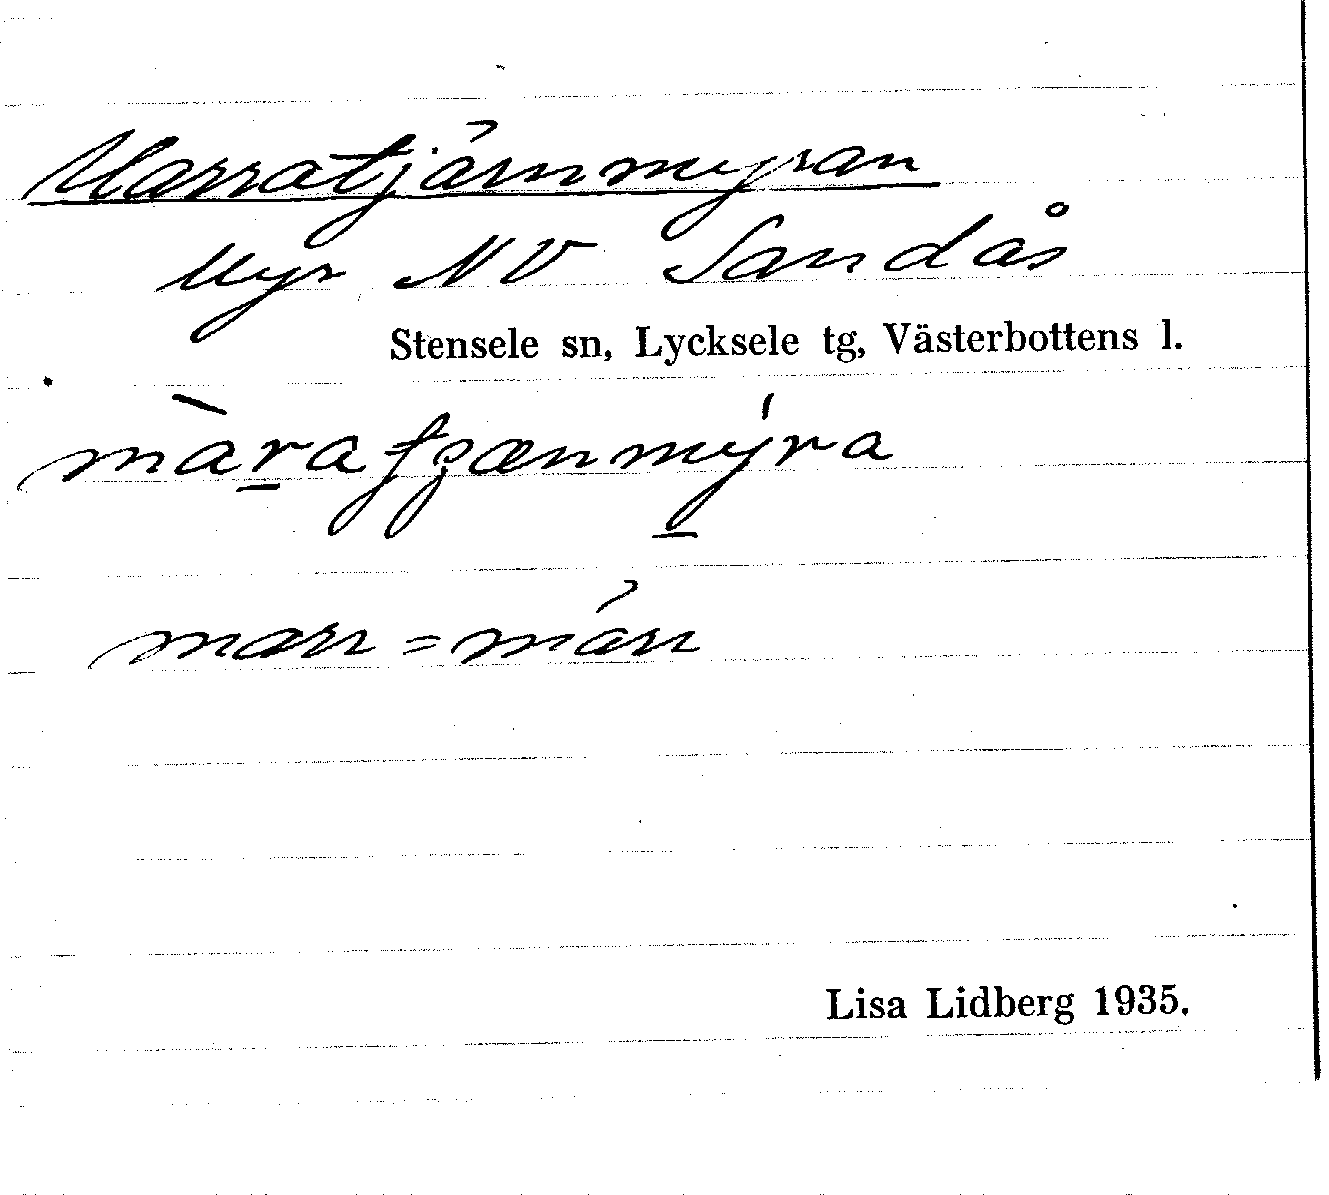 Marratjärnmyran
Myr NV Sandås
Stensele sn, Lycksele tg, Västerbottens l.
màr̲atȷænmýr̲a
marr = märr
Lisa Lidberg 1935.